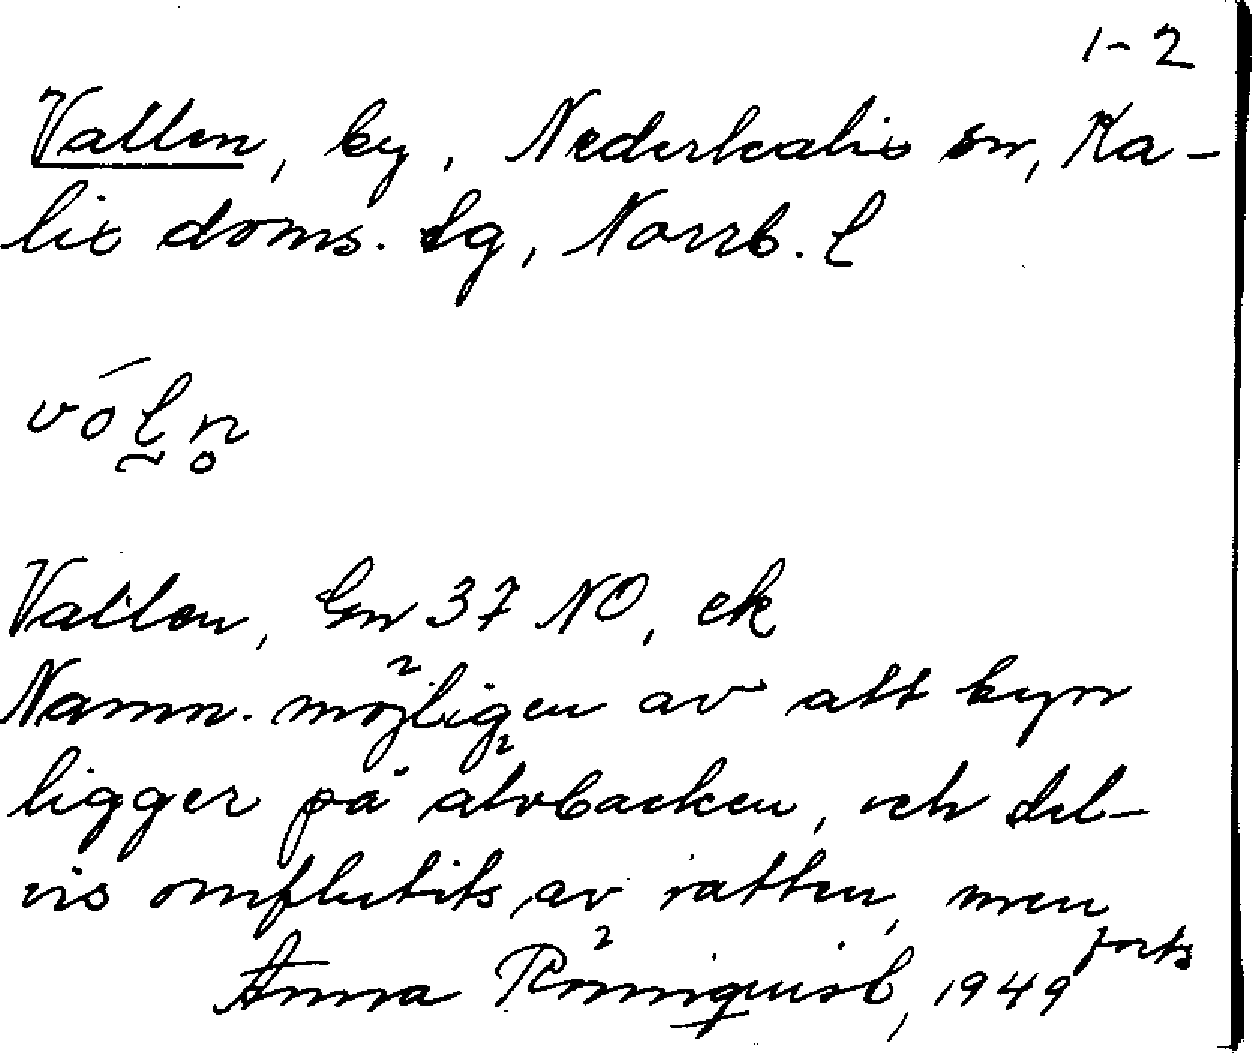 1-2
Vallen, by, Nederkalix sn, Ka-
lix doms. sg, Norrb. l
Vallen, Gn 37 NO, ek
Namn. möjligen av att byn
ligger på älvbacken, och del-
vis omflutits av vatten, men
forts
Anna Rönnquist, 1949